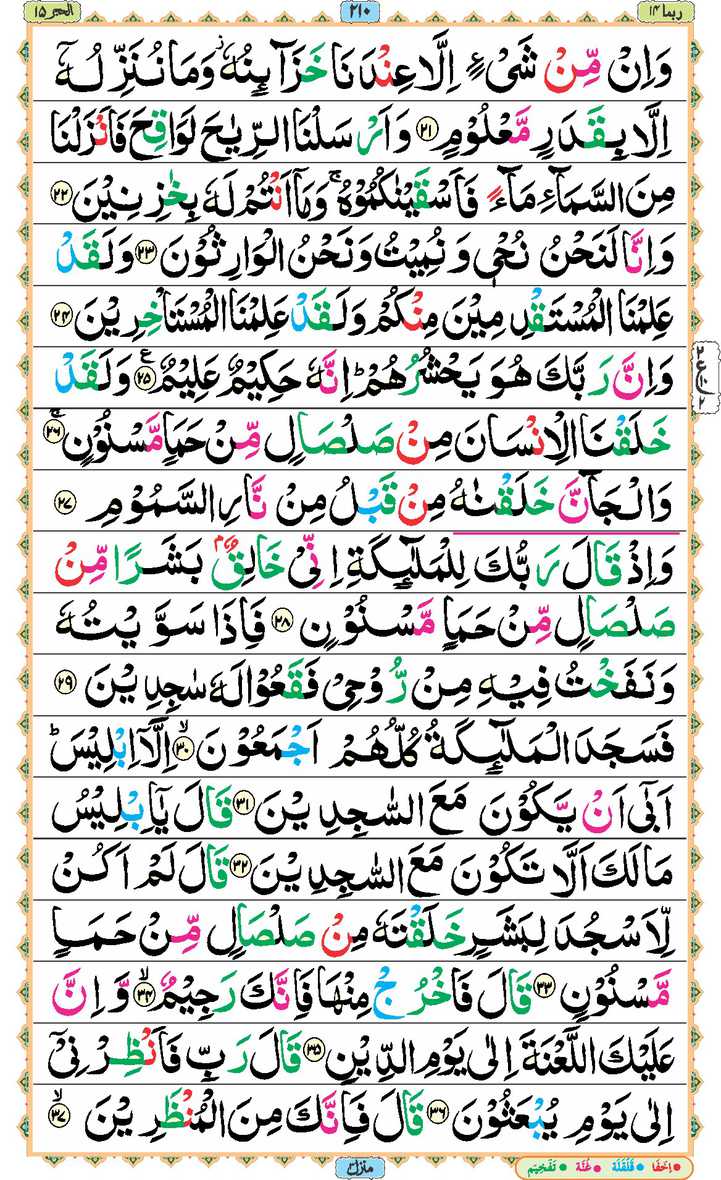 ربما ١٤
٢١٠
الحجر ١٥
وَاِنْ مِّنْ شَیْءٍ اِلَّا عِنْدَنَا خَزَآئِنُهٗ ؗ وَمَا نُنَزِّلُهٗۤ
اِلَّا بِقَدَرٍ مَّعْلُوْمٍ ﴿۲۱﴾ وَاَرْسَلْنَا الرِّیٰحَ لَوَاقِحَ فَاَنْزَلْنَا
مِنَ السَّمَآءِ مَآءً فَاَسْقَیْنٰكُمُوْهُ ۚ وَمَاۤ اَنْتُمْ لَهٗ بِخٰزِنِیْنَ ﴿۲۲﴾
وَاِنَّا لَنَحْنُ نُحْیٖ وَنُمِیْتُ وَنَحْنُ الْوَارِثُوْنَ ﴿۲۳﴾ وَلَقَدْ
عَلِمْنَا الْمُسْتَقْدِمِیْنَ مِنْكُمْ وَلَقَدْ عَلِمْنَا الْمُسْتَاْخِرِیْنَ ﴿۲۴﴾
وَاِنَّ رَبَّكَ هُوَ یَحْشُرُهُمْ ؕ اِنَّهٗ حَكِیْمٌ عَلِیْمٌ ﴿۲۵﴾ ع وَلَقَدْ
خَلَقْنَا الْاِنْسَانَ مِنْ صَلْصَالٍ مِّنْ حَمَاٍ مَّسْنُوْنٍ ﴿ۚ۲۶﴾
وَالْجَآنَّ خَلَقْنٰهُ مِنْ قَبْلُ مِنْ نَّارِ السَّمُوْمِ ﴿۲۷﴾
وَاِذْ قَالَ رَبُّكَ لِلْمَلٰٓئِكَةِ اِنِّیْ خَالِقٌۢ بَشَرًا مِّنْ
صَلْصَالٍ مِّنْ حَمَاٍ مَّسْنُوْنٍ ﴿۲۸﴾ فَاِذَا سَوَّیْتُهٗ
وَنَفَخْتُ فِیْهِ مِنْ رُّوْحِیْ فَقَعُوْا لَهٗ سٰجِدِیْنَ ﴿۲۹﴾
فَسَجَدَ الْمَلٰٓئِكَةُ كُلُّهُمْ اَجْمَعُوْنَ ﴿ۙ۳۰﴾ اِلَّاۤ اِبْلِیْسَ ؕ
اَبٰۤی اَنْ یَّكُوْنَ مَعَ السّٰجِدِیْنَ ﴿۳۱﴾ قَالَ یٰۤاِبْلِیْسُ
مَا لَكَ اَلَّا تَكُوْنَ مَعَ السّٰجِدِیْنَ ﴿۳۲﴾ قَالَ لَمْ اَكُنْ
لِّاَسْجُدَ لِبَشَرٍ خَلَقْتَهٗ مِنْ صَلْصَالٍ مِّنْ حَمَاٍ
مَّسْنُوْنٍ ﴿۳۳﴾ قَالَ فَاخْرُجْ مِنْهَا فَاِنَّكَ رَجِیْمٌ ﴿ۙ۳۴﴾ وَّاِنَّ
عَلَیْكَ اللَّعْنَةَ اِلٰی یَوْمِ الدِّیْنِ ﴿۳۵﴾ قَالَ رَبِّ فَاَنْظِرْنِیْۤ
اِلٰی یَوْمِ یُبْعَثُوْنَ ﴿۳۶﴾ قَالَ فَاِنَّكَ مِنَ الْمُنْظَرِیْنَ ﴿ۙ۳۷﴾
منزل ۳
اِخفَا • قَلْقَلَة • غُنَّة • تَفْخِيْم •